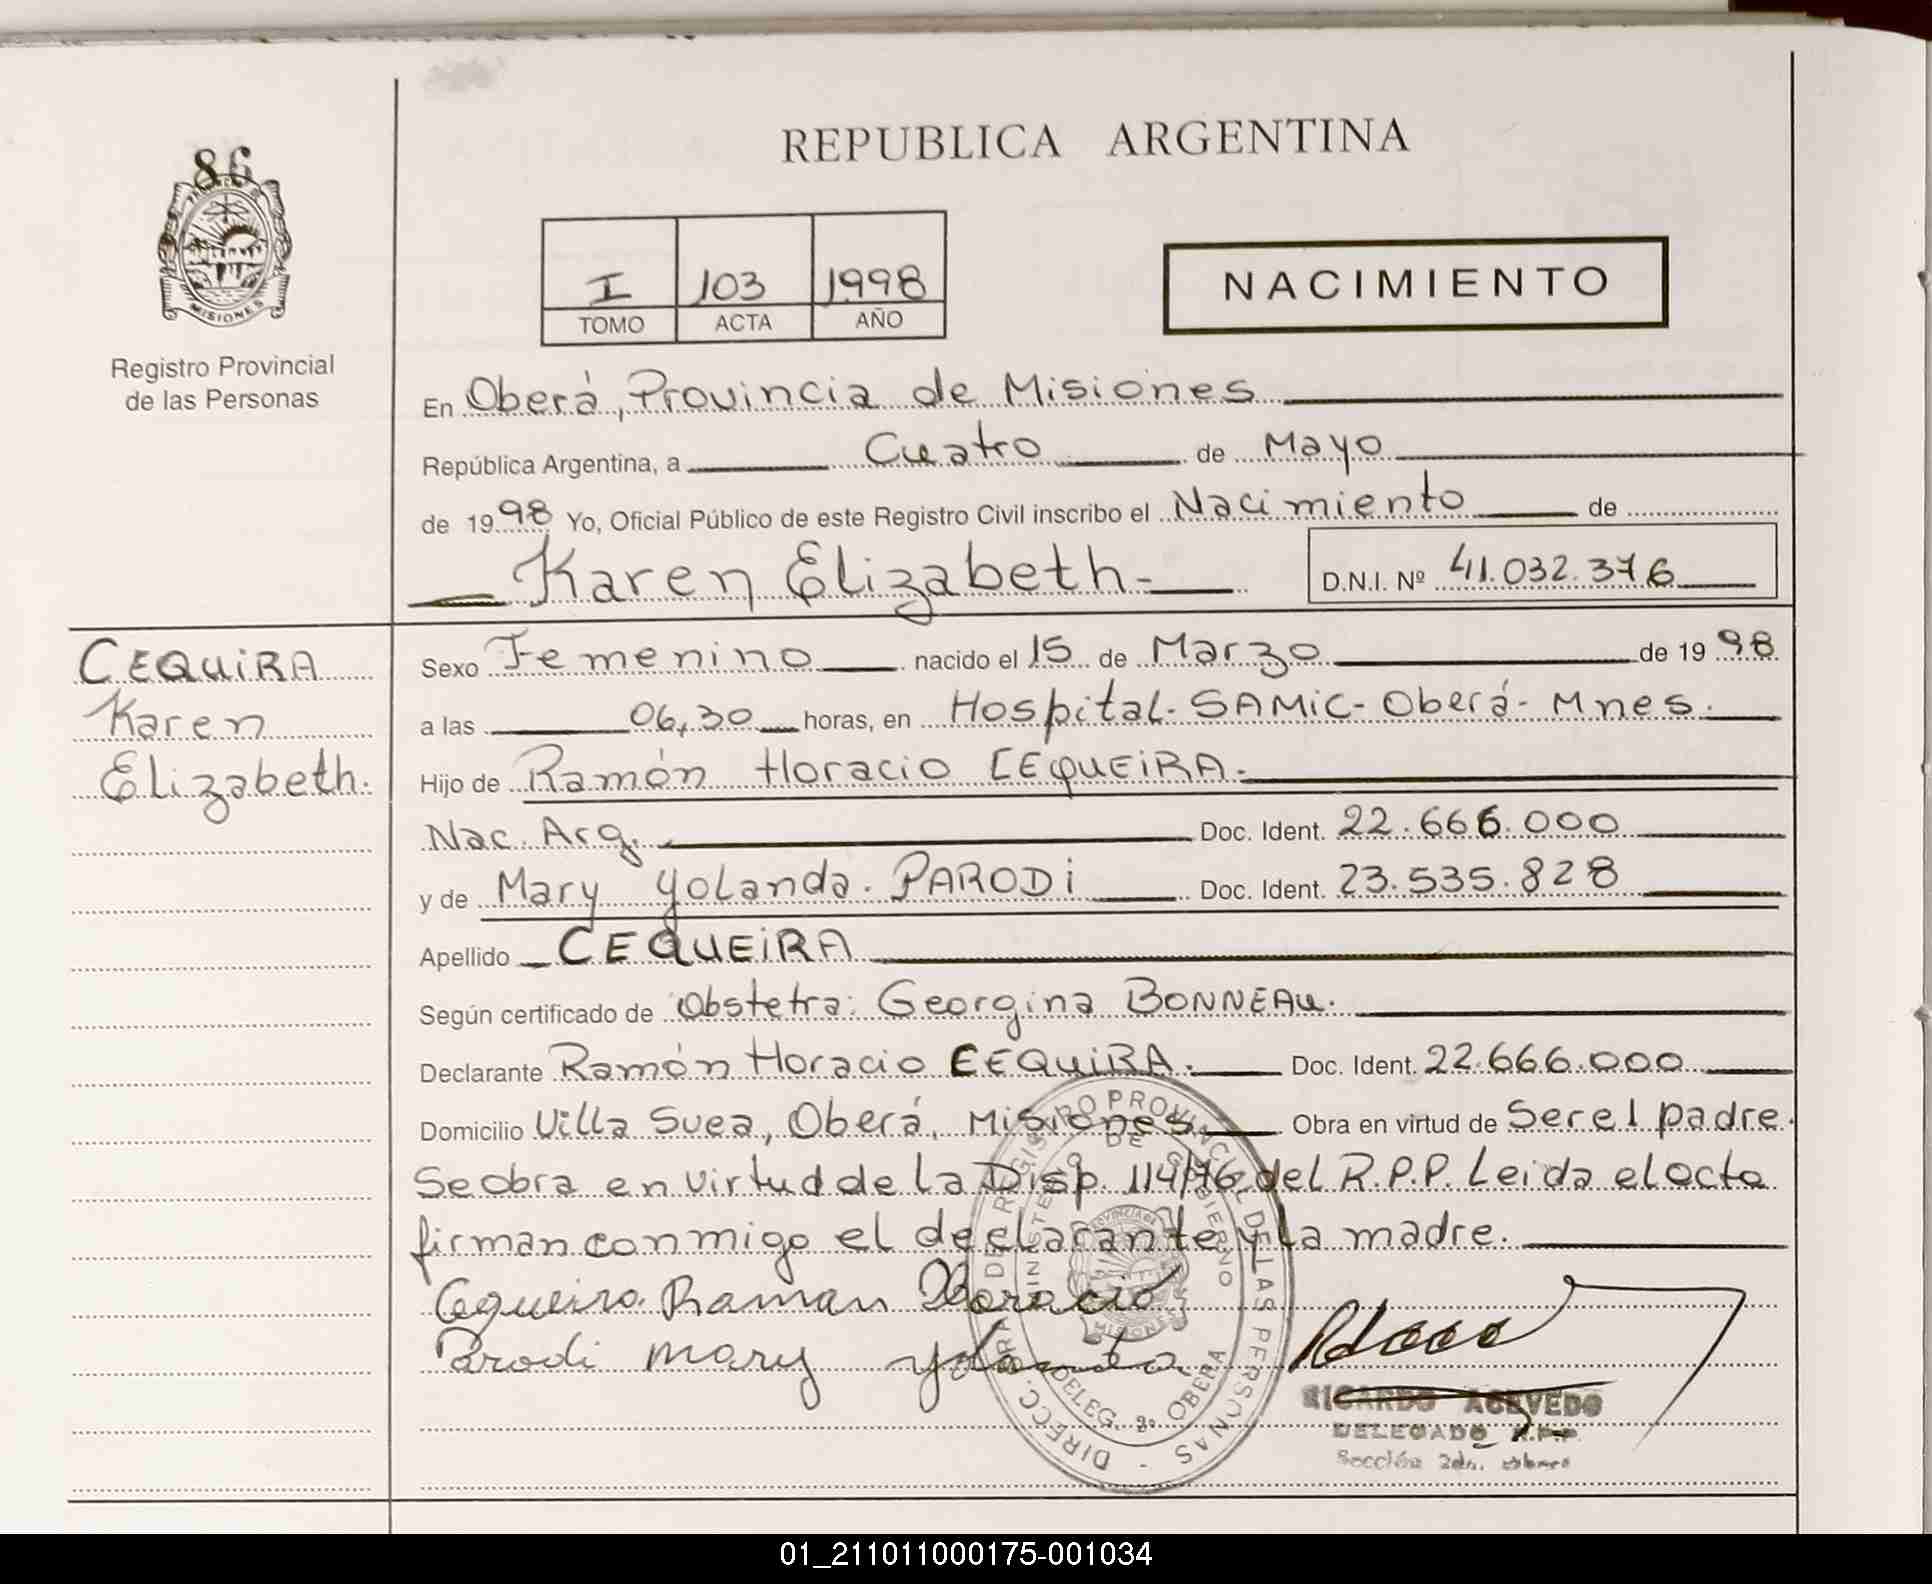 86
MISIONES
Registro Provincial
de las Personas
REPUBLICA ARGENTINA
I 103 1998
TOMO ACTA AÑO
NACIMIENTO
En Oberá, Provincia de Misiones
República Argentina, a Cuatro de Mayo
de 1998 Yo, Oficial Público de este Registro Civil inscribo el Nacimiento de
Karen Elizabeth.- D.N.I. Nº 41.032.376
CEQUiRA
Karen
Elizabeth.
Sexo Femenino nacido el 15 de Marzo de 1998
a las 06,30 horas, en Hospital- SAMiC- Oberá- Mnes.
Hijo de Ramón Horacio CEQUEiRA.-
Nac. Arg. Doc. Ident. 22.666.000
y de Mary Yolanda. PARODi Doc. Ident. 23.535.828
Apellido CEQUEiRA
Según certificado de Obstetra: Georgina BONNEAU.
Declarante Ramón Horacio CEQUiRA. Doc. Ident. 22.666.000
Domicilio Villa Svea, Oberá, Misiones. Obra en virtud de Ser el padre.
Se obra en virtud de la Disp. 114/76 del R.P.P. Leida el acta
firman conmigo el declarante y la madre.
Cequeira Raman Horacio
Parodi mary yolanda
DIRECC. GRAL. DE REGISTRO PROVINCIAL DE LAS PERSONAS -
MINISTERIO DE GOBIERNO
PROVINCIA DE
MISIONES
DELEG. 2º OBERA
RICARDO ACEVEDO
DELEGADO R.P.P.
Sección 2da. Obera
01_211011000175-001034